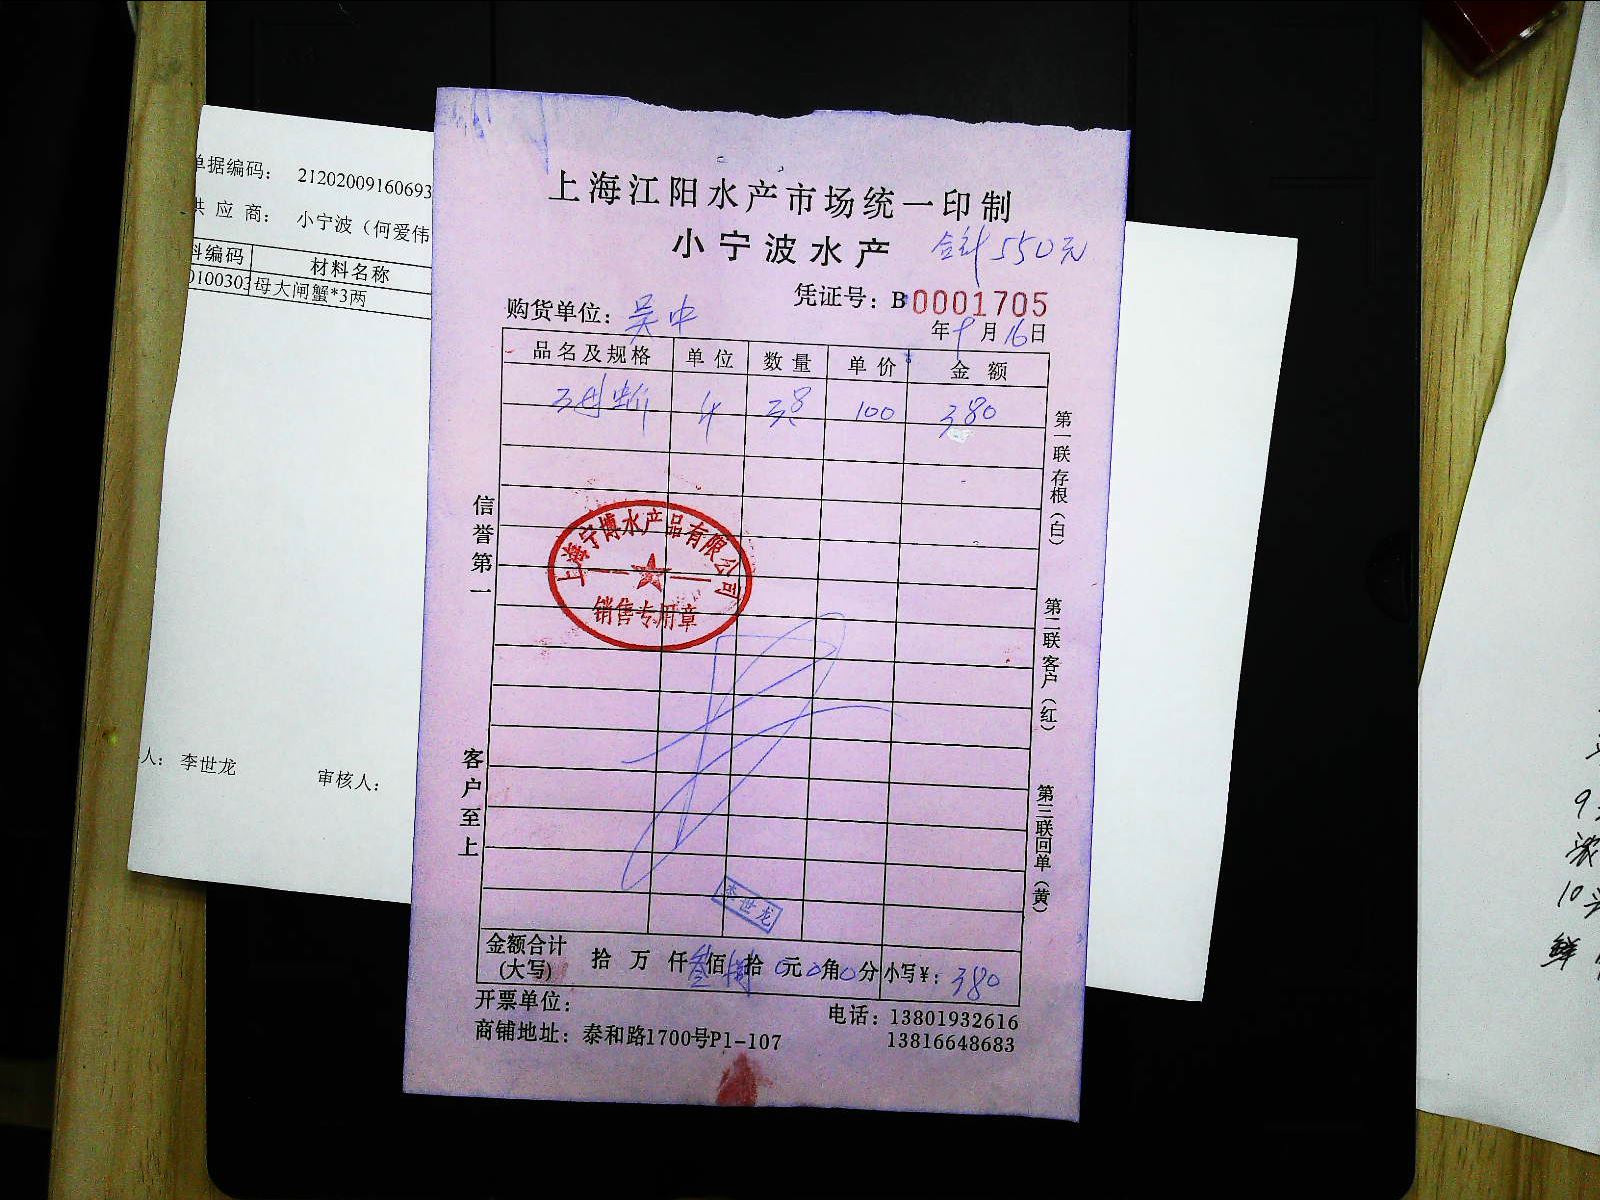 单据编码： 21202009160693
供 应 商： 小宁波（何爱伟
料编码 材料名称
0100303 母大闸蟹*3两
人： 李世龙 审核人：
上海江阳水产市场统一印制
小宁波水产
合计550元
凭证号：B0001705
购货单位：吴中
年9月16日
品名及规格 单位 数量 单价 金额
100 380
信誉第一
客户至上
第一联存根（白）
第二联客户（红）
第三联回单（黄）
上海宁博水产品有限公司
销售专用章
李世龙
金额合计（大写） 拾 万 仟叁佰捌拾0元0角0分 小写¥：380
开票单位：
商铺地址：泰和路1700号P1-107
电话：13801932616
13816648683
9
10
鲜